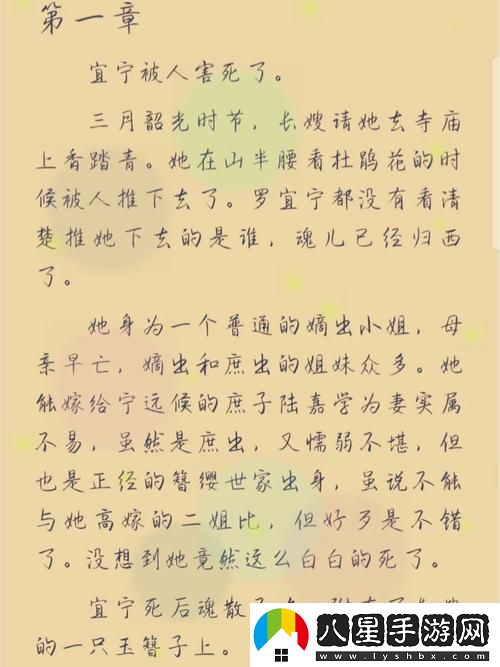 第一章
宜宁被人害死了。
三月韶光时节，长嫂请她去寺庙
上香踏青。她在山半腰看杜鹃花的时
候被人推下去了。罗宜宁都没有看清
楚推她下去的是谁，魂儿已经归西
了。
她身为一个普通的嫡出小姐，母
亲早亡，嫡出和庶出的姐妹众多。她
能嫁给宁远候的庶子陆嘉学为妻实属
不易，虽然是庶出，又懦弱不堪，但
也是正经的簪缨世家出身，虽说不能
与她高嫁的二姐比，但好歹是不错
了。没想到她竟然这么白白的死了。
宜宁死后魂散
的一只玉簪子上。
八星手游网
www.lyshbx.com